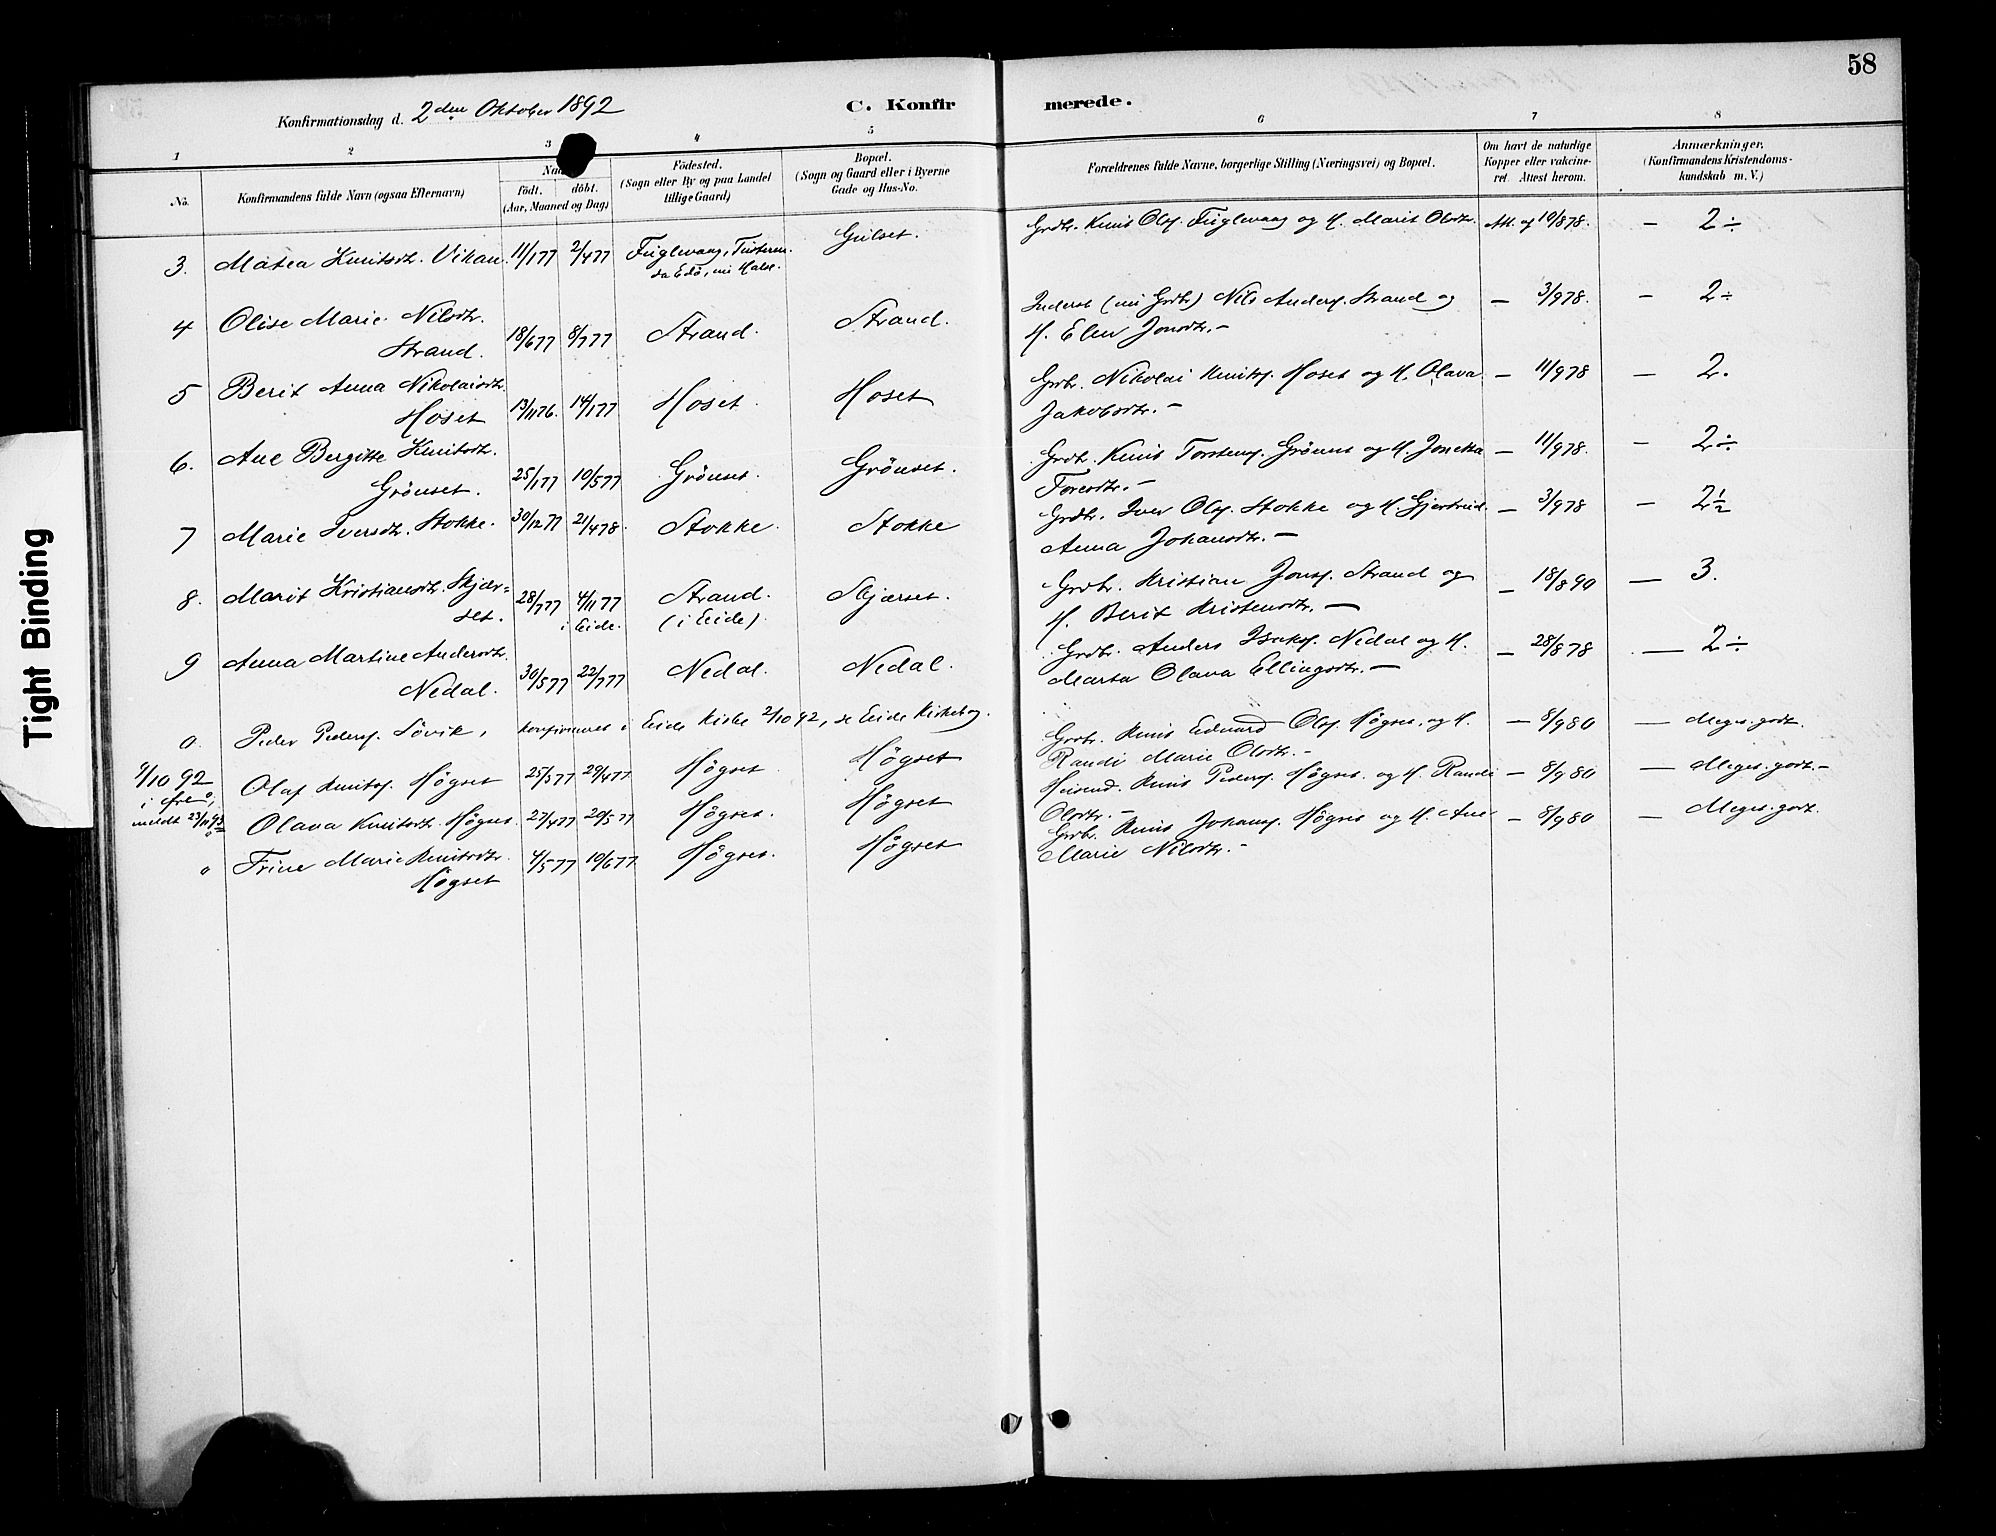 58
Konfirmationsdag d. 2den Oktober 1892
C. Konfirmerede.
1 2 3 4 5 6 7 8
No.
Konfirmandens fulde Navn (ogsaa Efternavn)
født. døbt.
(Aar, Maaned og Dag)
Fødested.
(Sogn eller By og paa Landet
tillige Gaard)
Bopæl.
(Sogn og Gaard eller i Byerne
Gade og Hus-No.
Forældrenes fulde Navne, borgerlige Stilling (Næringsvei) og Bopæl.
Om havt de naturlige
Kopper eller vakcine-
ret. Attest herom.
Anmærkninger.
(Konfirmandens Kristendoms-
kundskab m. V.)
3. Matea Knutsdtr. Vikan 11/1 77 2/4 77 Fuglevaag, Tusteren. Gulset. Grdbr. Knut Ols. Fuglevaag og H. Marit Olsdtr. Att. af 10/8 78. — 2÷
4 Olise Marie Nilsdtr.
Strand. 18/6 77 8/7 77 Strand. Strand. Inderst (nu Grdbr) Nils Anders. Strand og — 3/9 78. — 2÷
H. Elen Jonsdtr. —
5 Berit Anna Nikolaisdtr.
Hoset 13/11 76. 14/1 77 Hoset. Hoset Grdbr. Nikolai Knuts. Hoset og H. Olava — 11/9 78 — 2.
Jakobsdtr. —
6. Ane Bergitte Knutsdtr.
Grönset. 25/1 77 10/5 77 Grönset. Grönset. Grdbr. Knut Torstens. Grönset og H. Jonetta — 11/9 78. — 2÷
Toresdtr. —
7 Marie Iversdtr. Stokke. 30/12 77 21/4 78. Stokke. Stokke Grdbr. Iver Ols. Stokke og H. Gjertrud — 3/9 78 — 2½
Anna Johansdtr. —
8. Marit Kristiansdtr. Skjær-
set. 28/7 77 4/11 77
i Eide. Strand.
(i Eide) Skjærset. Grdbr. Kristian Jons. Strand og — 18/8 90 — 3.
H. Berit Kristensdtr. —
9 Anna Martine Andersdtr.
Nedal. 30/5 77 22/7 77 Nedal. Nedal. Grdbr. Anders Isaks. Nedal og H. — 28/8 78 — 2÷
Marta Olava Ellingsdtr. —
0. Peder Peders. Lövik, konfirmeret i Eide Kirke 2/10 92, se Eide Kirkebog.
9/10 92
i Fre
meldt
Olaf Knuts. Högset 25/3 77 29/4 77 Högset Högset Grdbr. Knut Edvard Ols. Högset og H. — 8/9 80 — Meget godt.
Randi Marie Olsdtr. —
Olava Knutsdtr. Högset. 27/4 77 20/5 77 Högset. Högset Knut Peders. Högset og H. Randi — 8/9 80 — Meget godt. —
Olsdtr. —
0 Trine Marie Knutsdtr.
Högset 4/5 77 10/6 77 Högset. Högset Grdbr. Knut Johans. Högset og H. Ane — 8/9 80 — Meget godt.
Marie Nilsdtr. —
Tight Binding